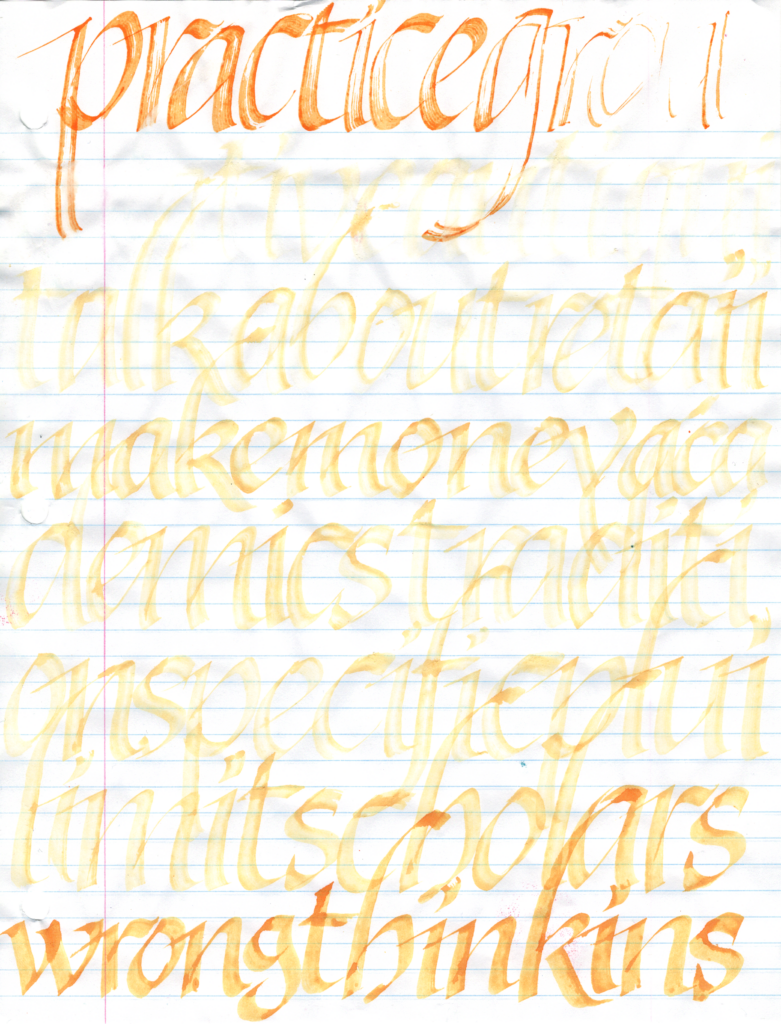 practicegrou
talkaboutretaii
makemoneyaca
demicstraditi
onspecificphii
limitscholars
wrongthinkins